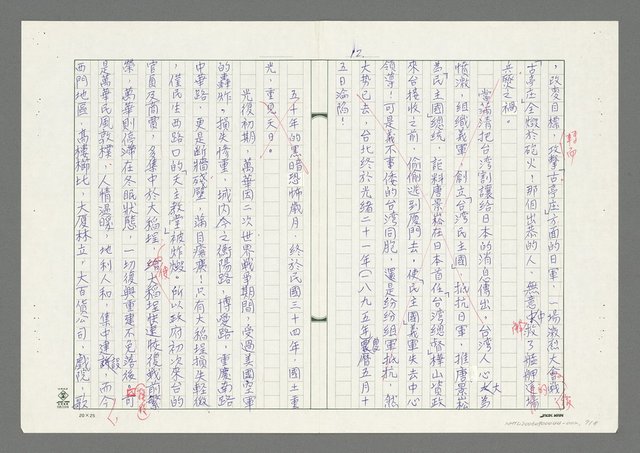 12
，改變目標，攻擊古亭庄方面的日軍，一場激烈大會戰，
古亭庄全燬於砲火！那個出恭的人，無意中救了艋舺這場的
兵燹之禍。
當滿清把台灣割讓給日本的消息傳出，台灣人心大為
憤激，組織義軍，創立「台灣民主國」抵抗日軍，推唐景崧
為「民主國」總統，詎料唐景崧在日本首任台灣總督樺山資政
來台接收之前，偷偷逃到廈門去，使「民主國」義軍失去中心
領導！可是義不事倭的台灣同胞，還是紛紛組軍抵抗，然
大勢已去，台北終於光緒二十一年（一八九五年）農曆五月十
五日淪陷！
五十年的黑暗恐怖歲月，終於民國三十四年，國土重
光，重見天日。
光復初期，萬華因二次世界戰爭期間，受過美國空軍
的轟炸，損失慘重，城內今之衡陽路、博愛路、重慶南路
中華路，更是斷牆殘壁，滿目瘡痍！只有大稻埕損失輕微
，僅民生西路口的「天主教堂」被炸燬。所以政府初次來台的
官員及商賈，多集中於大稻埕，使大稻埕快速恢復戰前繁
榮，萬華則停滯在冬眠狀態，一切復興重建不免落後，可
是萬華民風敦樸，人情溫暖，地利人和，集中建設，而今
西門地區，高樓櫛比，大廈林立，大百貨公司，戲院，歌
轉向
20×25